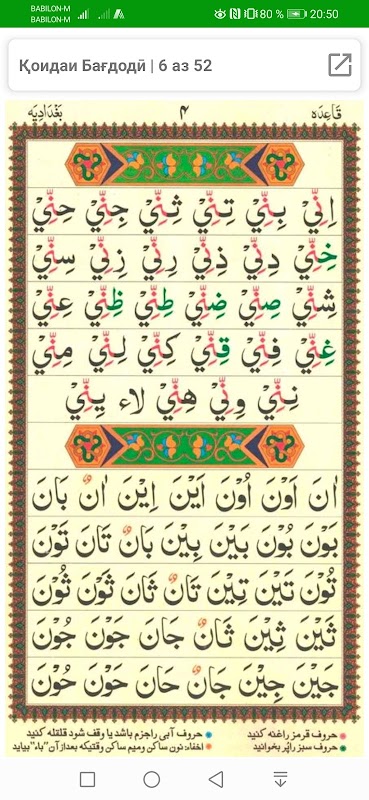 BABILON-M
BABILON-M
80 % 20:50
Қоидаи Бағдодӣ | 6 аз 52
قَاعِدَه ۴ بَغْدَادِيَه
اِنِّيْ بِنِّيْ تِنِّيْ ثِنِّيْ جِنِّيْ حِنِّيْ
خِنِّيْ دِنِّيْ ذِنِّيْ رِنِّيْ زِنِّيْ سِنِّيْ
شِنِّيْ صِنِّيْ ضِنِّيْ طِنِّيْ ظِنِّيْ عِنِّيْ
غِنِّيْ فِنِّيْ قِنِّيْ كِنِّيْ لِنِّيْ مِنِّيْ
نِنِّيْ وِنِّيْ هِنِّيْ لاء يِنِّيْ
اٰنَ اَوْنَ اُوْنَ اَيْنَ اِيْنَ اٰنٌ بَانَ
بَوْنَ بُوْنَ بَيْنَ بِيْنَ بَانٌ تَانَ تَوْنَ
تُوْنَ تَيْنَ تِيْنَ تَانٌ ثَانَ ثَوْنَ ثُوْنَ
ثَيْنَ ثِيْنَ ثَانٌ جَانَ جَوْنَ جُوْنَ
جَيْنَ جِيْنَ جَانٌ حَانَ حَوْنَ حُوْنَ
حروف قرمز راغنه کنید
حروف آبی راجزم باشد یا وقف شود قلقله کنید
حروف سبز راپُر بخوانید
اخفاء: نون ساکن ومیم ساکن وقتیکه بعداز آن "باء" بیاید